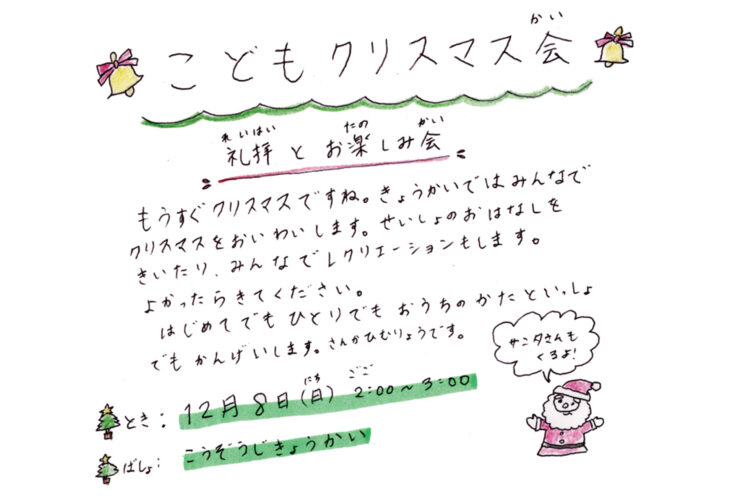 かい
こどもクリスマス会
れいはい たの かい
礼拝とお楽しみ会
もうすぐクリスマスですね。きょうかいではみんなで
クリスマスをおいわいします。せいしょのおはなしを
きいたり、みんなでレクリエーションもします。
よかったらきてください。
はじめてでもひとりでもおうちのかたといっしょ
でもかんげいします。さんかひむりょうです。
サンタさんも
くるよ!
にち ごご
とき: 12月8日(日) 2:00~3:00
ばしょ: こうぞうじきょうかい